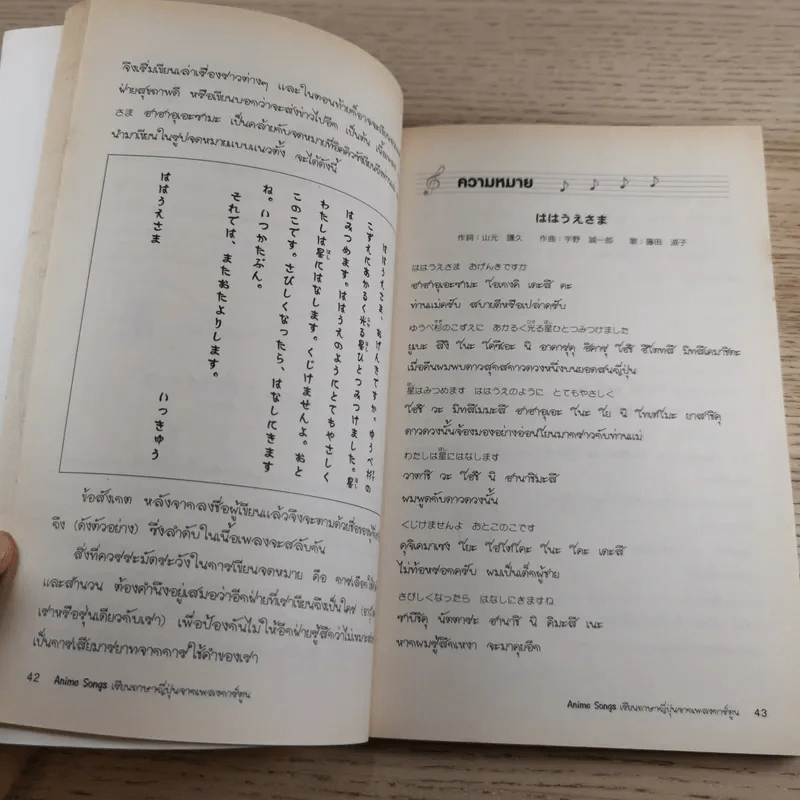 จึงเริ่มเขียนเล่าเรื่องราวต่างๆ และในตอนท้ายก็อาจจะ
ฝ่ายสุขภาพดี หรือเขียนบอกว่าจะส่งข่าวไปอีก เป็นต้น
さま ฮาฮาอุเอะซามะ เป็นคล้ายกับจดหมายที่อิคคิวซังเขียนถึงท่านแม่
นำมาเขียนในรูปจดหมายแบบแนวตั้ง จะได้ดังนี้
ははうえさま、おげんきですか。ゆうべ杉の
こずえにあかるく光る星ひとつみつけました。星
はみつめます。ははうえのようにとてもやさしく
わたしは星にはなします。くじけませんよ。おと
このこです。さびしくなったら、はなしにきます
ね。いつかたぶん。
それでは、またおたよりします。
いっきゅう
ははうえさま
ข้อสังเกต หลังจากลงชื่อผู้เขียนแล้วจึงจะตามด้วยชื่อของผู้ที่
จึง (ดังตัวอย่าง) ซึ่งลำดับในเนื้อเพลงจะสลับกัน
สิ่งที่ควรระมัดระวังในการเขียนจดหมาย คือ การเลือกใช้
และสำนวน ต้องคำนึงอยู่เสมอว่าอีกฝ่ายที่เราเขียนถึงเป็นใคร
เราหรือรุ่นเดียวกับเรา) เพื่อป้องกันไม่ให้อีกฝ่ายรู้สึกว่าไม่เหมาะสม
เป็นการเสียมารยาทจากการใช้คำของเรา
42 Anime Songs เรียนภาษาญี่ปุ่นจากเพลงการ์ตูน
ความหมาย
ははうえさま
作詞：山元 護久 作曲：宇野 誠一郎 歌：藤田 淑子
ははうえさま おげんきですか
ฮาฮาอุเอะซามะ โอเกงคิ เดะสึ คะ
ท่านแม่ครับ สบายดีหรือเปล่าครับ
ゆうべ杉のこずえに あかるく光る星ひとつみつけました
ยูเบะ สึงิ โนะ โคซึเอะ นิ อาคารุคุ ฮิคารุ โฮชิ ฮิโตทสึ มิทสึเคมาชิตะ
เมื่อคืนผมพบดาวสุกสกาวดวงหนึ่งบนยอดสนญี่ปุ่น
星はみつめます ははうえのように とてもやさしく
โฮชิ วะ มิทสึเมมะสึ ฮาฮาอุเอะ โนะ โย นิ โทเทโมะ ยาสาชิคุ
ดาวดวงนั้นจ้องมองอย่างอ่อนโยนมากราวกับท่านแม่
わたしは星にはなします
วาตาชิ วะ โฮชิ นิ ฮานาชิมะสึ
ผมพูดกับดาวดวงนั้น
くじけませんよ おとこのこです
คุจิเคมาเซง โยะ โอโตโคะ โนะ โคะ เดะสึ
ไม่ท้อหรอกครับ ผมเป็นเด็กผู้ชาย
さびしくなったら はなしにきますね
ซาบิชิคุ นัตตาระ ฮานาชิ นิ คิมะสึ เนะ
หากผมรู้สึกเหงา จะมาคุยอีก
Anime Songs เรียนภาษาญี่ปุ่นจากเพลงการ์ตูน 43